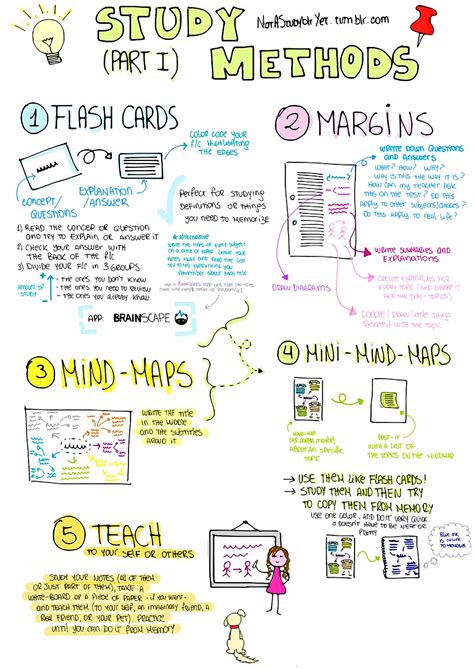 STUDY
(PART I)
METHODS
NotAStudyblrYet.tumblr.com
① FLASH CARDS
COLOR CODE YOUR
F/C HIGHLIGHTING
THE EDGES
CONCEPT/
QUESTIONS
EXPLANATION
/ANSWER
Perfect for studying
DEFINITIONS OR THINGS
YOU NEED TO MEMORIZE
1) READ THE CONCEPT OR QUESTION
AND TRY TO EXPLAIN OR ANSWER IT
2) CHECK YOUR ANSWER WITH
THE BACK OF THE F/C
3) DIVIDE YOUR F/C IN 3 GROUPS:
AMOUNT OF
STUDY
- THE ONES YOU DON'T KNOW
- THE ONES YOU NEED TO REVIEW
- THE ONES YOU ALREADY KNOW
* alternative
WRITE THE NAME OF YOUR SUBJECT
ON A PIECE OF PAPER.
REMEMBER ABOUT THAT TOPIC
APP: BRAINSCAPE
② MARGINS
WRITE DOWN QUESTIONS
AND ANSWERS
WHAT? HOW? WHY?
WHY IS THIS THE WAY IT IS?
HOW CAN MY TEACHER ASK
ON THE TEST? DO THIS
APPLY TO OTHER SUBJECTS/CLASSES? DO
THIS APPLY TO REAL LIFE?
WRITE SUMMARIES AND
EXPLANATIONS
CREATE EXAMPLES FOR
EVERY TOPIC (AND EVEN IF
THE SUB-TOPICS)
DRAW DIAGRAMS
DOODLE/DRAW LITTLE THINGS
RELATED WITH THE TOPIC
③ MIND-MAPS
WRITE THE TITLE
IN THE MIDDLE
AND THE SUBTITLES
AROUND IT
④ MINI-MIND-MAPS
MIND-MAP
ABOUT AN SPECIFIC
TOPIC
POST-IT
WITH A LIST OF
THE TOPICS ON THE MINDMAP
→ USE THEM LIKE FLASH CARDS!
→ STUDY THEM AND THEN TRY
TO COPY THEM FROM MEMORY
USE ONE COLOR, AND DO IT VERY QUICK
IT DOESN'T HAVE TO BE NEAT OR
PRETTY
BLUE INK
IS EASIER
TO MEMORIZE
⑤ TEACH
TO YOUR SELF OR OTHERS
STUDY YOUR NOTES (ALL OF THEM
OR JUST PART OF THEM), TAKE A
WHITE-BOARD OR A PIECE OF PAPER -IF YOU WANT-
AND TEACH THEM (TO YOUR SELF, AN IMAGINARY FRIEND, A
REAL FRIEND, OR YOUR PET) PRACTICE
UNTIL YOU CAN DO IT FROM MEMORY